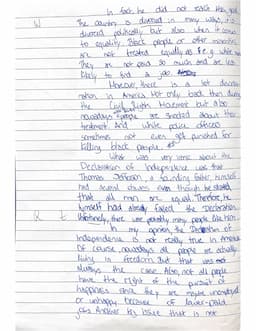 In fact, he did not reach this goal.
W The country is divided in many ways, it is
divided politically but also when it comes
to equality. Black people or other minorities
are not treated equally as e.g. white
They are not paid so much and are less
likely to find a job.
Moreover, there is a lot discrimi-
nation in America. Not only back then during
the Civil Right Movement but also
nowadays people are shocked about their
treatment. And white police officers
sometimes not even get punished for
killing black people.
What was very ironic about the
Declaration of Independence was that
Thomas Jefferson a founding father himself
had several slaves even though he stated
that all men are equal. Therefore, he
himself had already failed the Declaration.
R t Unfortunately, there were probably many people like him.
In my opinion, the Declaration of
Independence is not really true in America.
Of course, nowadays all people are actually
living in freedom but that was not
always the case. Also, not all people
have the right of the pursuit of
happiness since they are maybe unemployed
or unhappy because of lower-paid
jobs. Another big issue that is not